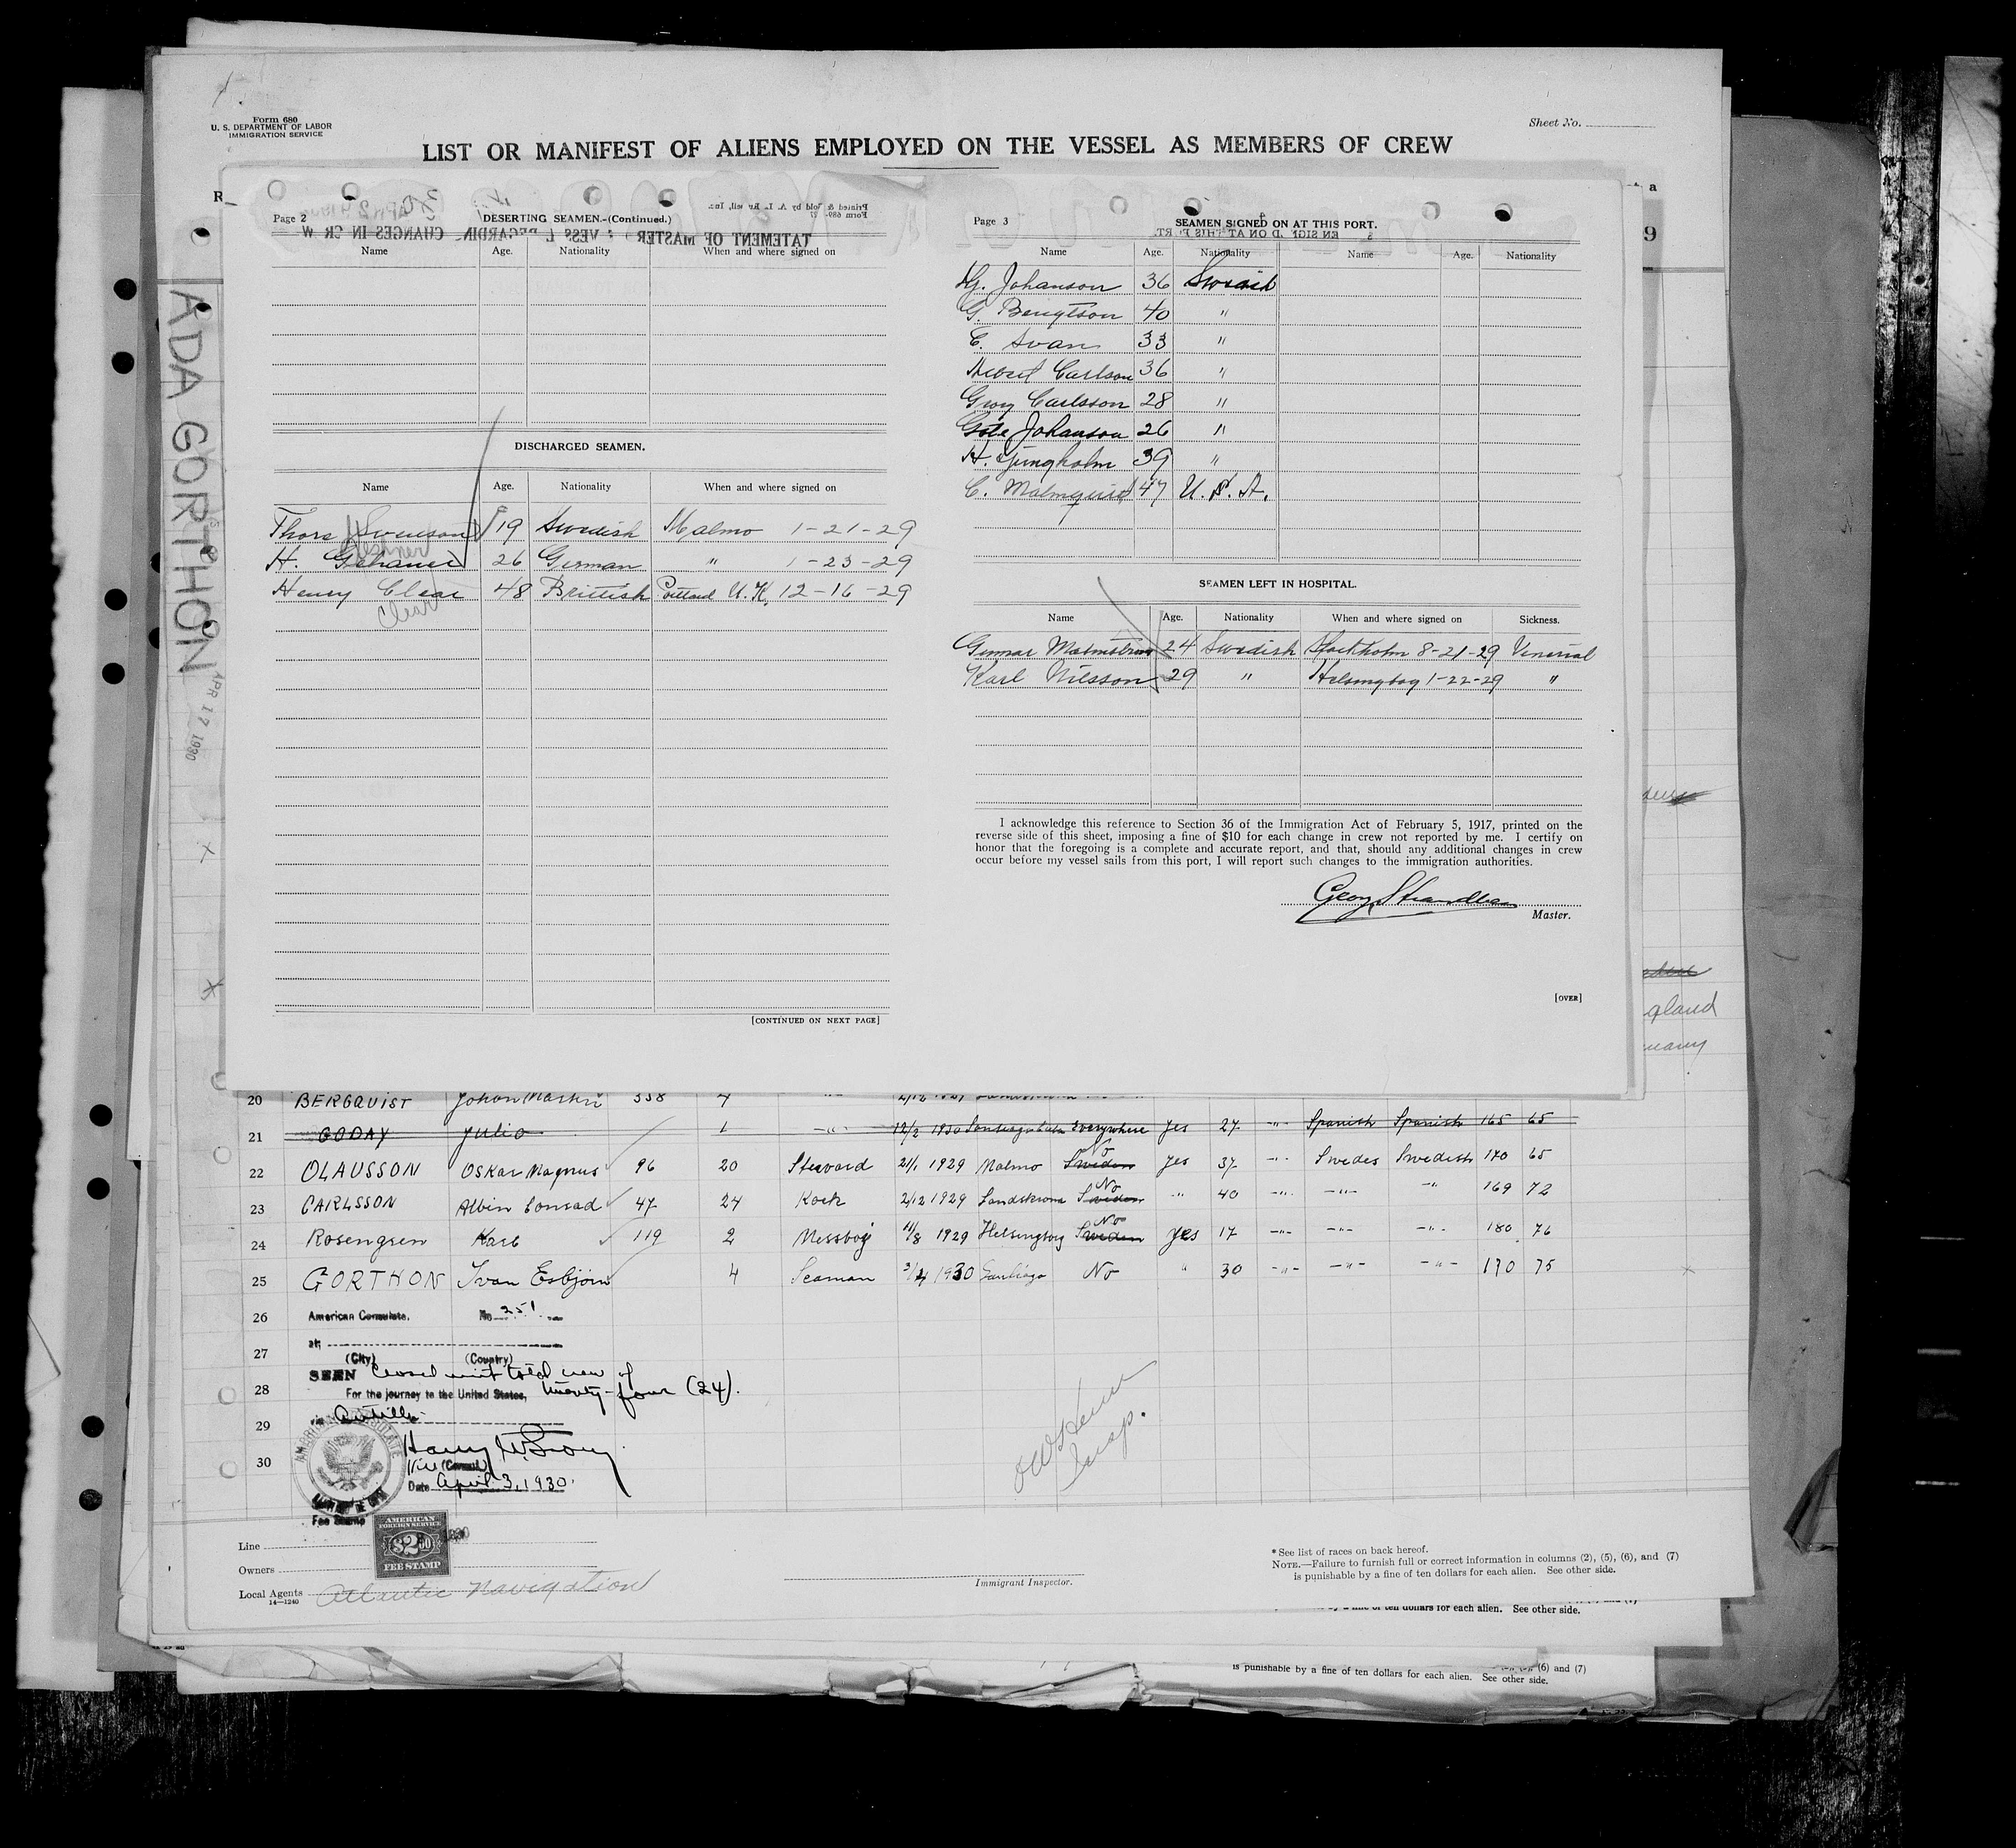 Form 680
U. S. DEPARTMENT OF LABOR
IMMIGRATION SERVICE
Sheet No.
LIST OR MANIFEST OF ALIENS EMPLOYED ON THE VESSEL AS MEMBERS OF CREW
ADA GORTHON
APR 17 1930
Page 2
DESERTING SEAMEN.-(Continued.)
Name Age. Nationality When and where signed on
DISCHARGED SEAMEN.
Name Age. Nationality When and where signed on
Thore Swenson 19 Swedish Malmo 1-21-29
H. 26 German " 1-23-29
Henry Clear 48 Brittish U.K. 12-16-29
Clear
[CONTINUED ON NEXT PAGE]
Page 3
SEAMEN SIGNED ON AT THIS PORT.
Name Age. Nationality Name Age. Nationality
G. Johanson 36
G. Bengtson 40 "
E. Svan 33 "
Carlson 36 "
Georg Carlsson 28 "
Gote Johanson 26 "
H. Ljungholm 39 "
C. Malmquist 47 U.S.A.
SEAMEN LEFT IN HOSPITAL.
Name Age. Nationality When and where signed on Sickness.
Gunnar Malmstrom 24 Swedish Stockholm 8-21-29 Venerial
Karl Nilsson 29 " Helsingborg 1-22-29 "
I acknowledge this reference to Section 36 of the Immigration Act of February 5, 1917, printed on the
reverse side of this sheet, imposing a fine of $10 for each change in crew not reported by me. I certify on
honor that the foregoing is a complete and accurate report, and that, should any additional changes in crew
occur before my vessel sails from this port, I will report such changes to the immigration authorities.
Georg Strandberg
Master.
[OVER]
20 BERGQVIST Johan Martin 338 4
21 GODAY Julio 1 -"- 12/2 1930 Everywhere Yes 27 -"- Spanish Spanish 165 65
22 OLAUSSON Oskar Magnus 96 20 Steward 21/1 1929 Malmo Sweden No Yes 37 -"- Swedes Swedish 170 65
23 CARLSSON Albin Conrad 47 24 Kock 2/12 1929 Landskrona Sweden No " 40 -"- -"- -"- 169 72
24 Rosengren Karl 119 2 Messboy 11/8 1929 Helsingborg Sweden No Yes 17 -"- -"- -"- 180 76
25 GORTHON Ivan Esbjörn 4 Seaman 3/4 1930 Santiago No " 30 -"- -"- -"- 170 75
26 American Consulate. No 251
27 at
(City) (Country)
SEEN Closed with total crew of
28 For the journey to the United States, twenty-four (24).
29 via Antilla
Harry W. Story
30 Vice (Consul)
Date April 3, 1930.
Fee Stamp
AMERICAN
FOREIGN SERVICE
$2.00
FEE STAMP
Insp.
Line
Owners
Local Agents Atlantic Navigation
14—1240
Immigrant Inspector.
* See list of races on back hereof.
NOTE.—Failure to furnish full or correct information in columns (2), (5), (6), and (7)
is punishable by a fine of ten dollars for each alien. See other side.
ten dollars for each alien. See other side.
(6) and (7)
is punishable by a fine of ten dollars for each alien. See other side.